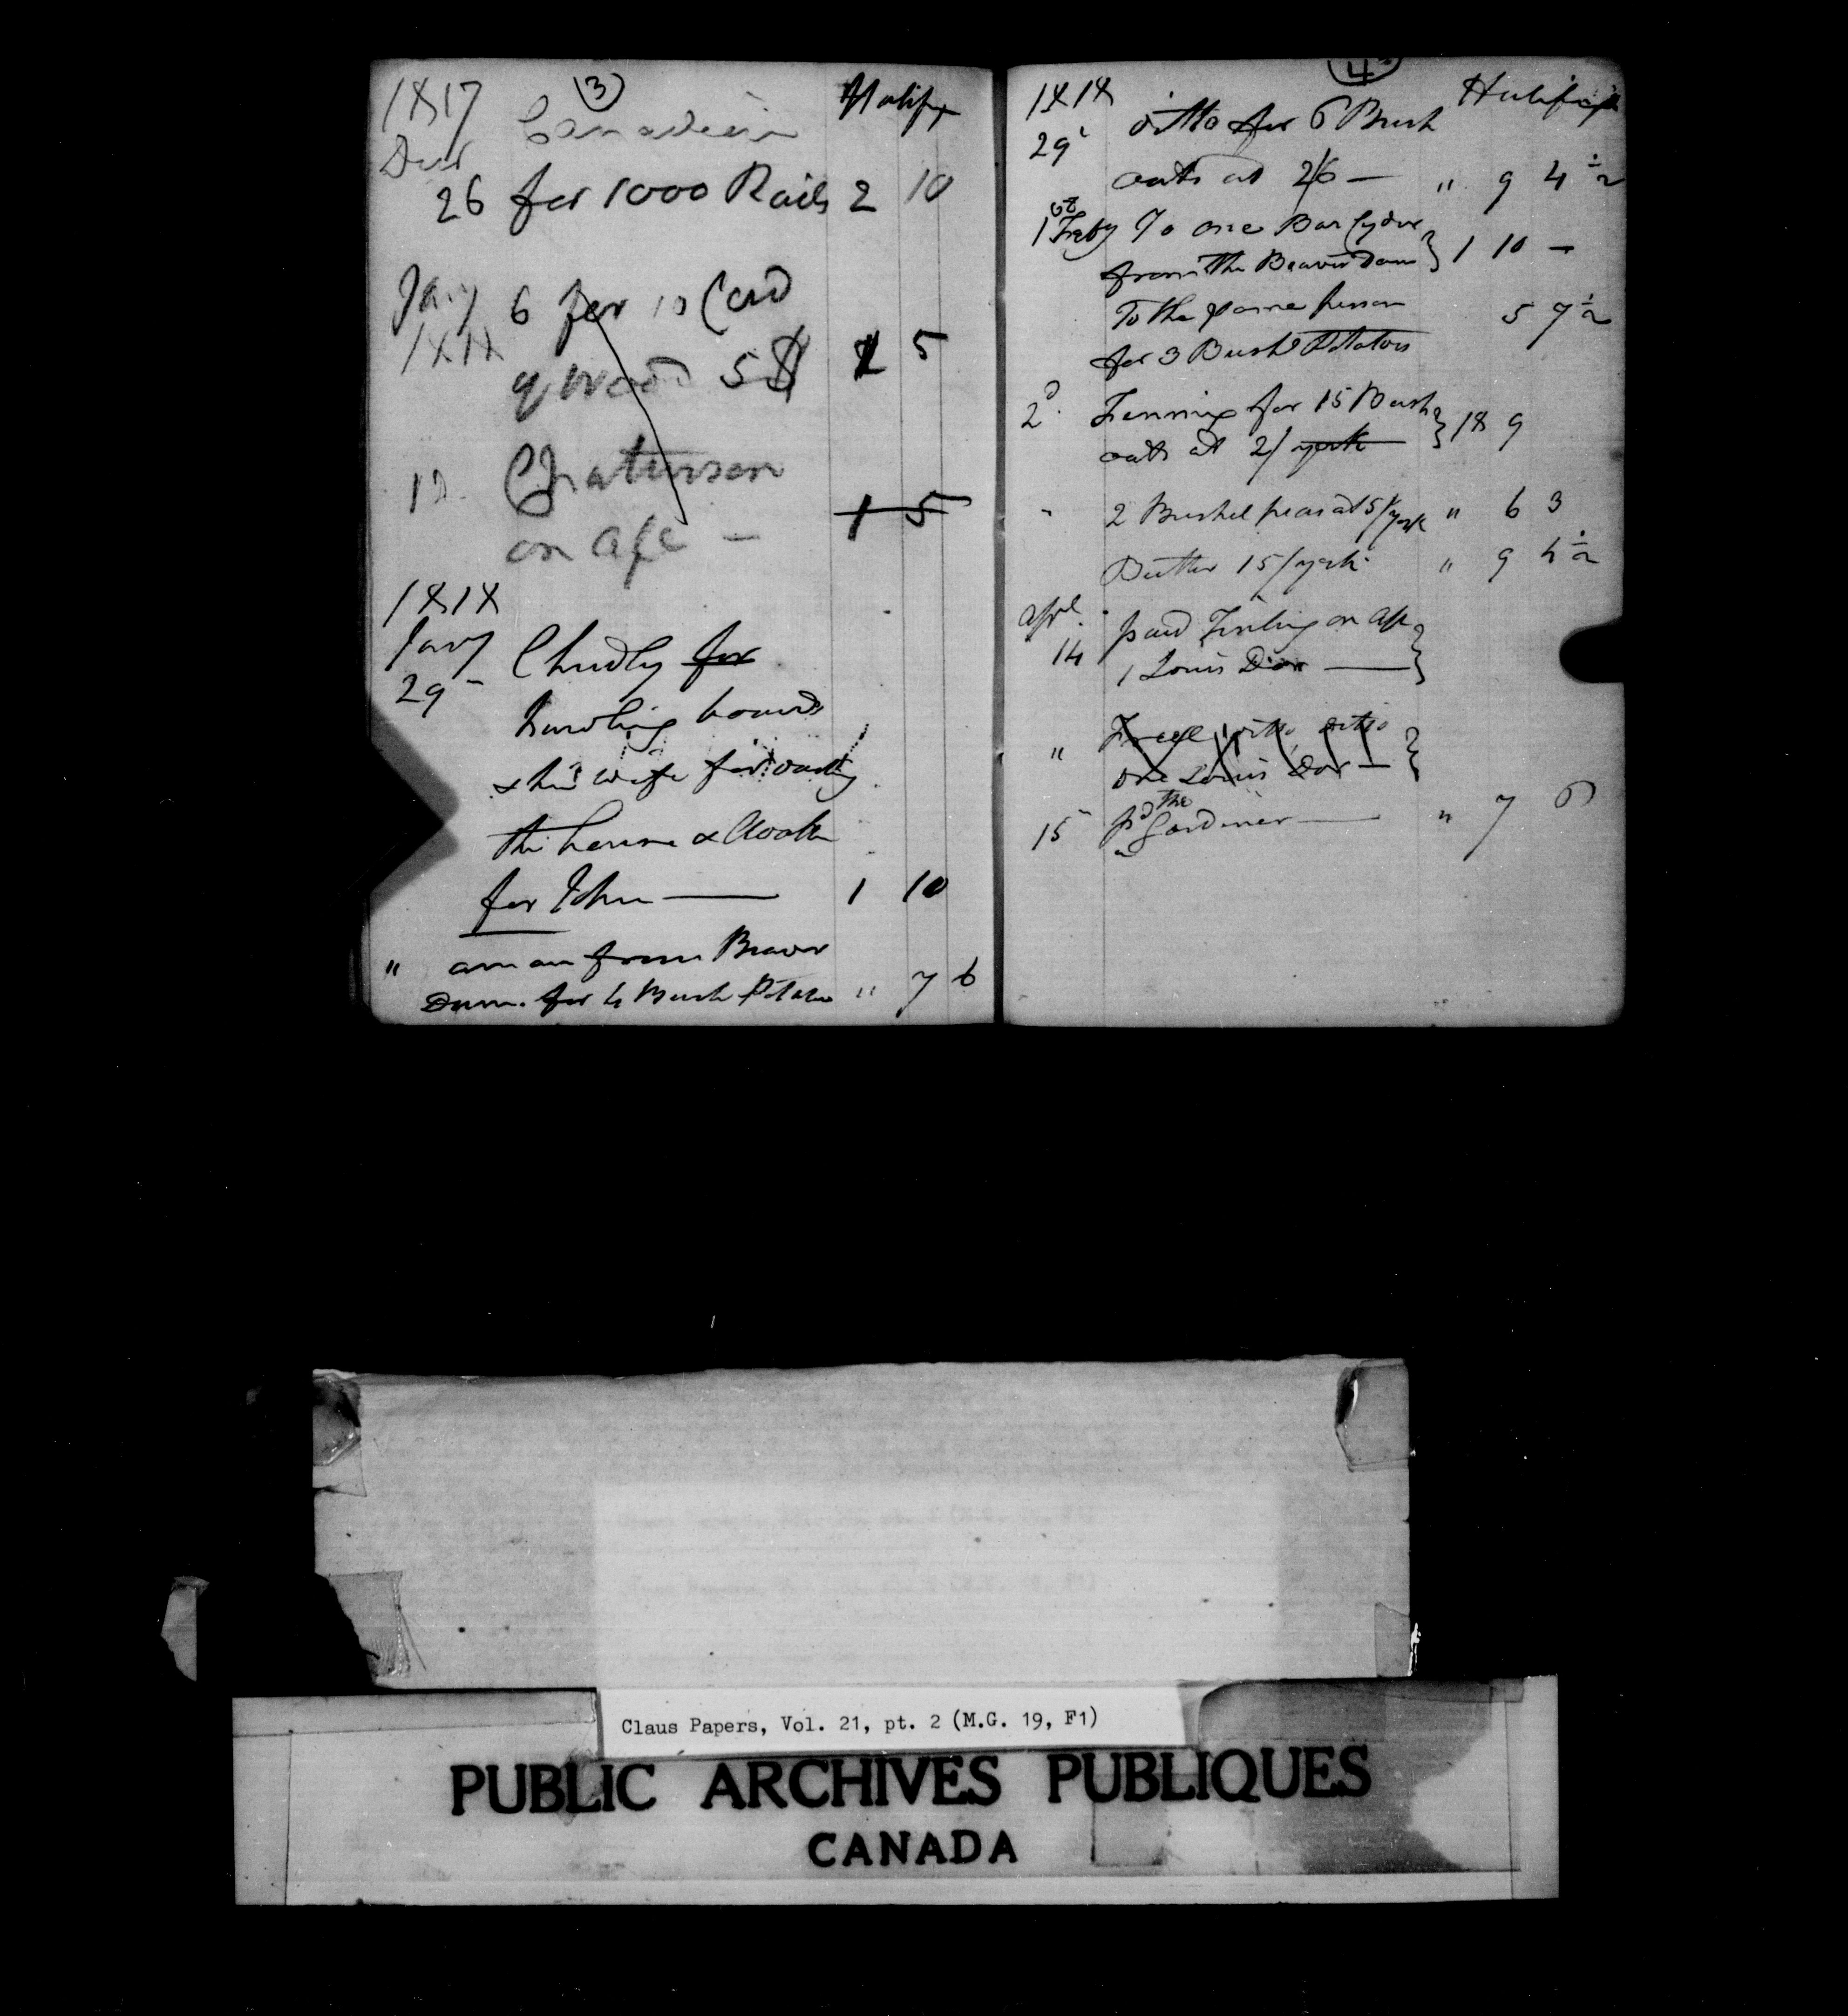 3
1817 Halifx
Decr Canadien
26 for 1000 Rails 2 10
Jany 6 for 10 Cord
1818
of Wood 5$ 1 5
12 Paterson
on a/c — 1 5
1818
Jany Chudly for
29 hawling boards
& his wife for
the house & Cloath
for John — 1 10
" a man from Beaver
Dam. for 4 Bush Potatoes " 7 6
4
1818 Halifax
29 ditto for 6 Bush
oats at 2/6 — " 9 4 ½
1st Feby To one Bar Cyder
from The Beaver Dam } 1 10 —
To the same person 5 7 ½
for 3 Bush Potatoes
2d. Fenning for 15 Bush
oats at 2/ york } 18 9
" 2 Bushel peas at 5/york " 6 3
Butter 15/york " 9 4 ½
Apl. paid on a/c
14 1 Louis Dor — }
" ditto ditto
one Louis Dor — }
15 pd the Gardiner — " 7 6
Claus Papers, Vol. 21, pt. 2 (M.G. 19, F1)
PUBLIC ARCHIVES PUBLIQUES
CANADA